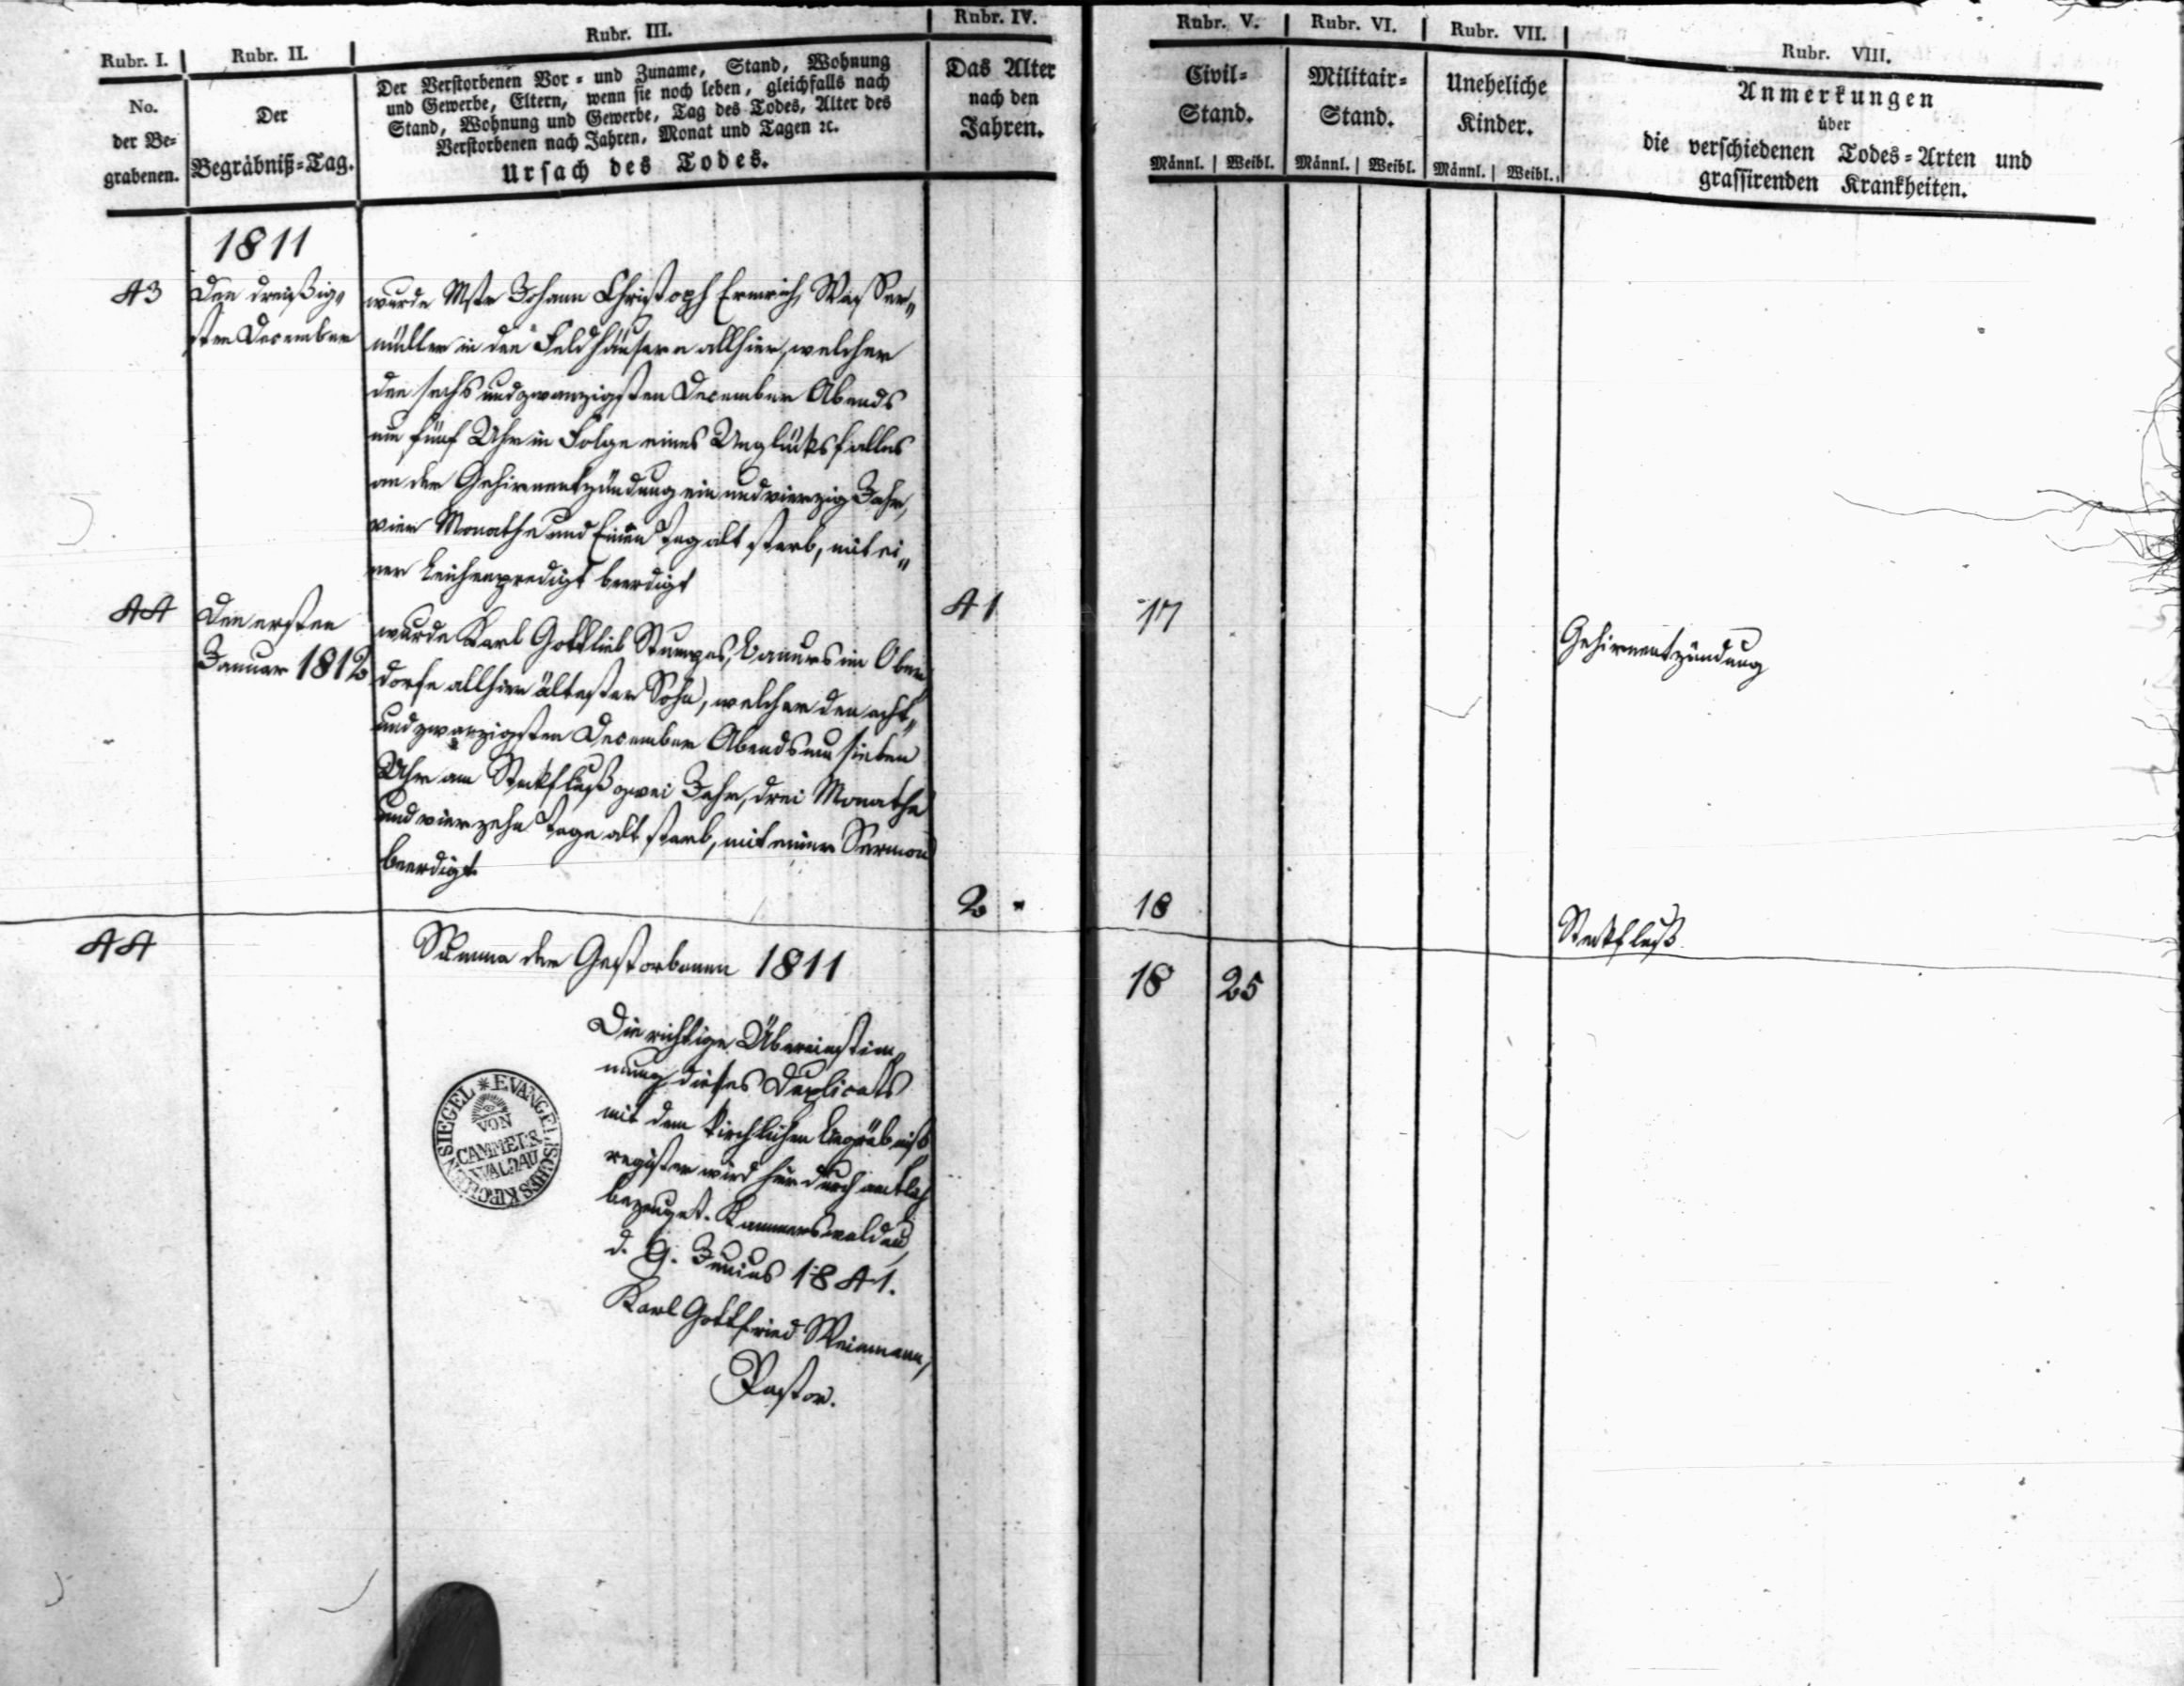 Rubr. I.
No.
der Be-
grabenen.
Rubr. II.
Der
Begräbniß-Tag.
Rubr. III.
Der Verstorbenen Vor- und Zuname, Stand, Wohnung
und Gewerbe, Eltern, wenn sie noch leben, gleichfalls nach
Stand, Wohnung und Gewerbe, Tag des Todes, Alter des
Verstorbenen nach Jahren, Monat und Tagen ꝛc.
Ursach des Todes.
Rubr. IV.
Das Alter
nach den
Jahren.
Rubr. V.
Civil-
Stand.
Männl. Weibl.
Rubr. VI.
Militair-
Stand.
Männl. Weibl.
Rubr. VII.
Uneheliche
Kinder.
Männl. Weibl.
Rubr. VIII.
Anmerkungen
über
die verschiedenen Todes-Arten und
grassirenden Krankheiten.
1811
43
Den dreißig-
sten December
wurde Mstr Johann Christoph Ermrich, Wasser-
müller in den Feldhäusern allhier, welcher
den sechs und zwanzigsten December Abends
um fünf Uhr in Folge eines Unglücksfalles
an der Gehirnentzündung ein und vierzig Jahr,
vier Monathe und Einen Tag alt starb, mit ei-
ner Leichenpredigt beerdigt
41
17
Gehirnentzündung
44
Den ersten
Januar 1812
wurde Karl Gottlieb Stumpes, Bauers im Ober-
dorfe allhier ältester Sohn, welcher den acht-
und zwanzigsten December Abends um sieben
Uhr am Steckfluß zwei Jahr, drei Monathe
und vierzehn Tage alt starb, mit einer Sermon
beerdigt
2
18
Steckfluß.
44
Summa der Gestorbenen 1811
18 25
Die richtige Übereinstim-
mung dieses Duplicats
mit dem kirchlichen Begräbniß
register wird hierdurch amtlich
bezeuget. Kammerswaldau,
d. 9. Junius 1841.
Karl Gottfried Weinmann,
Pastor.
EVANGELISCHES KIRCHENSIEGEL
VON
CAMMERS
WALDAU